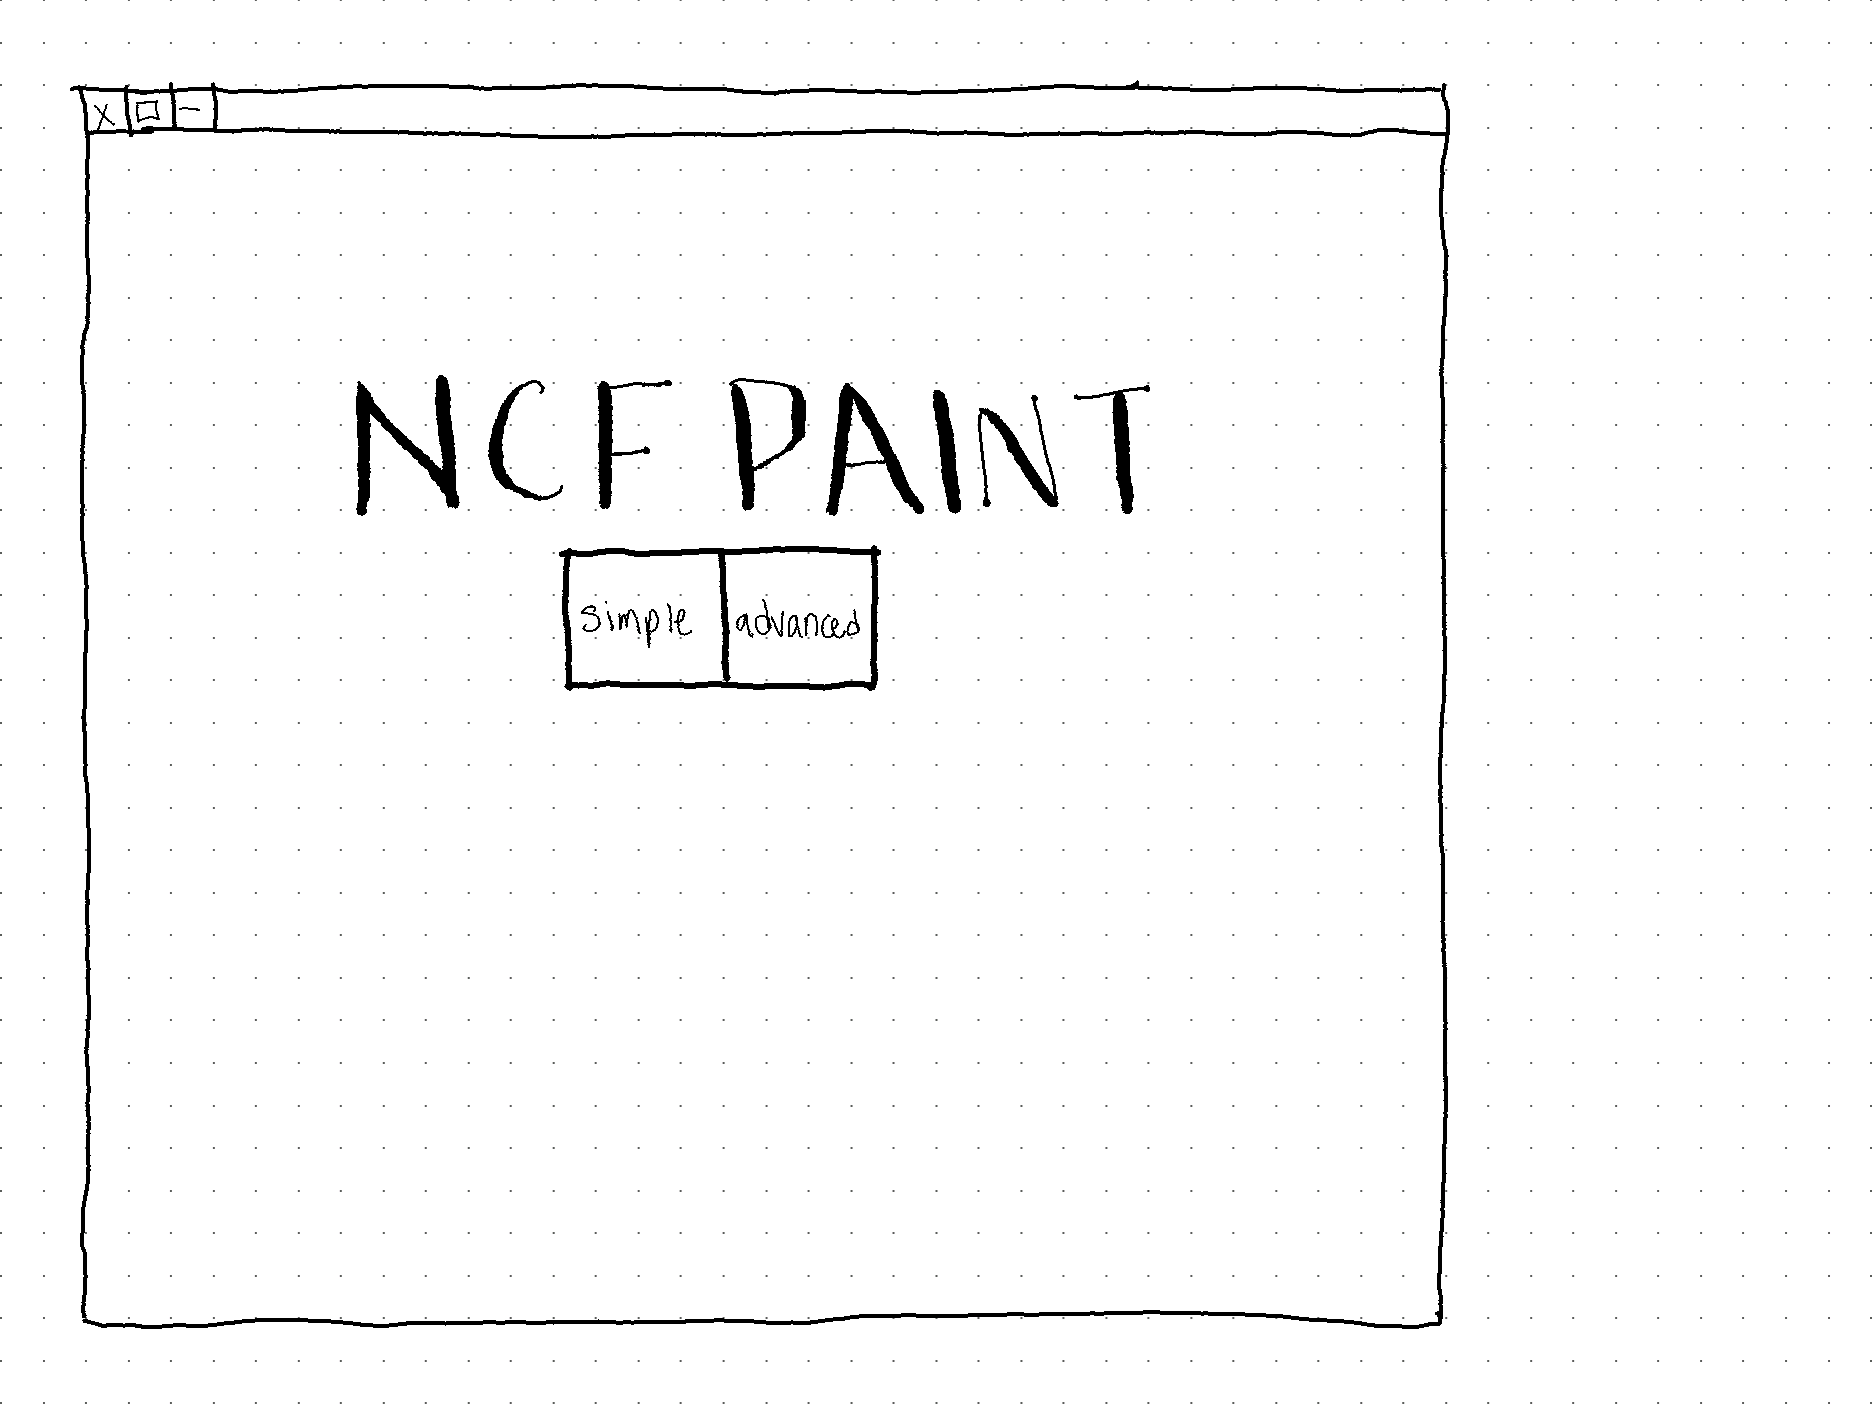 X
NCF PAINT
simple advanced